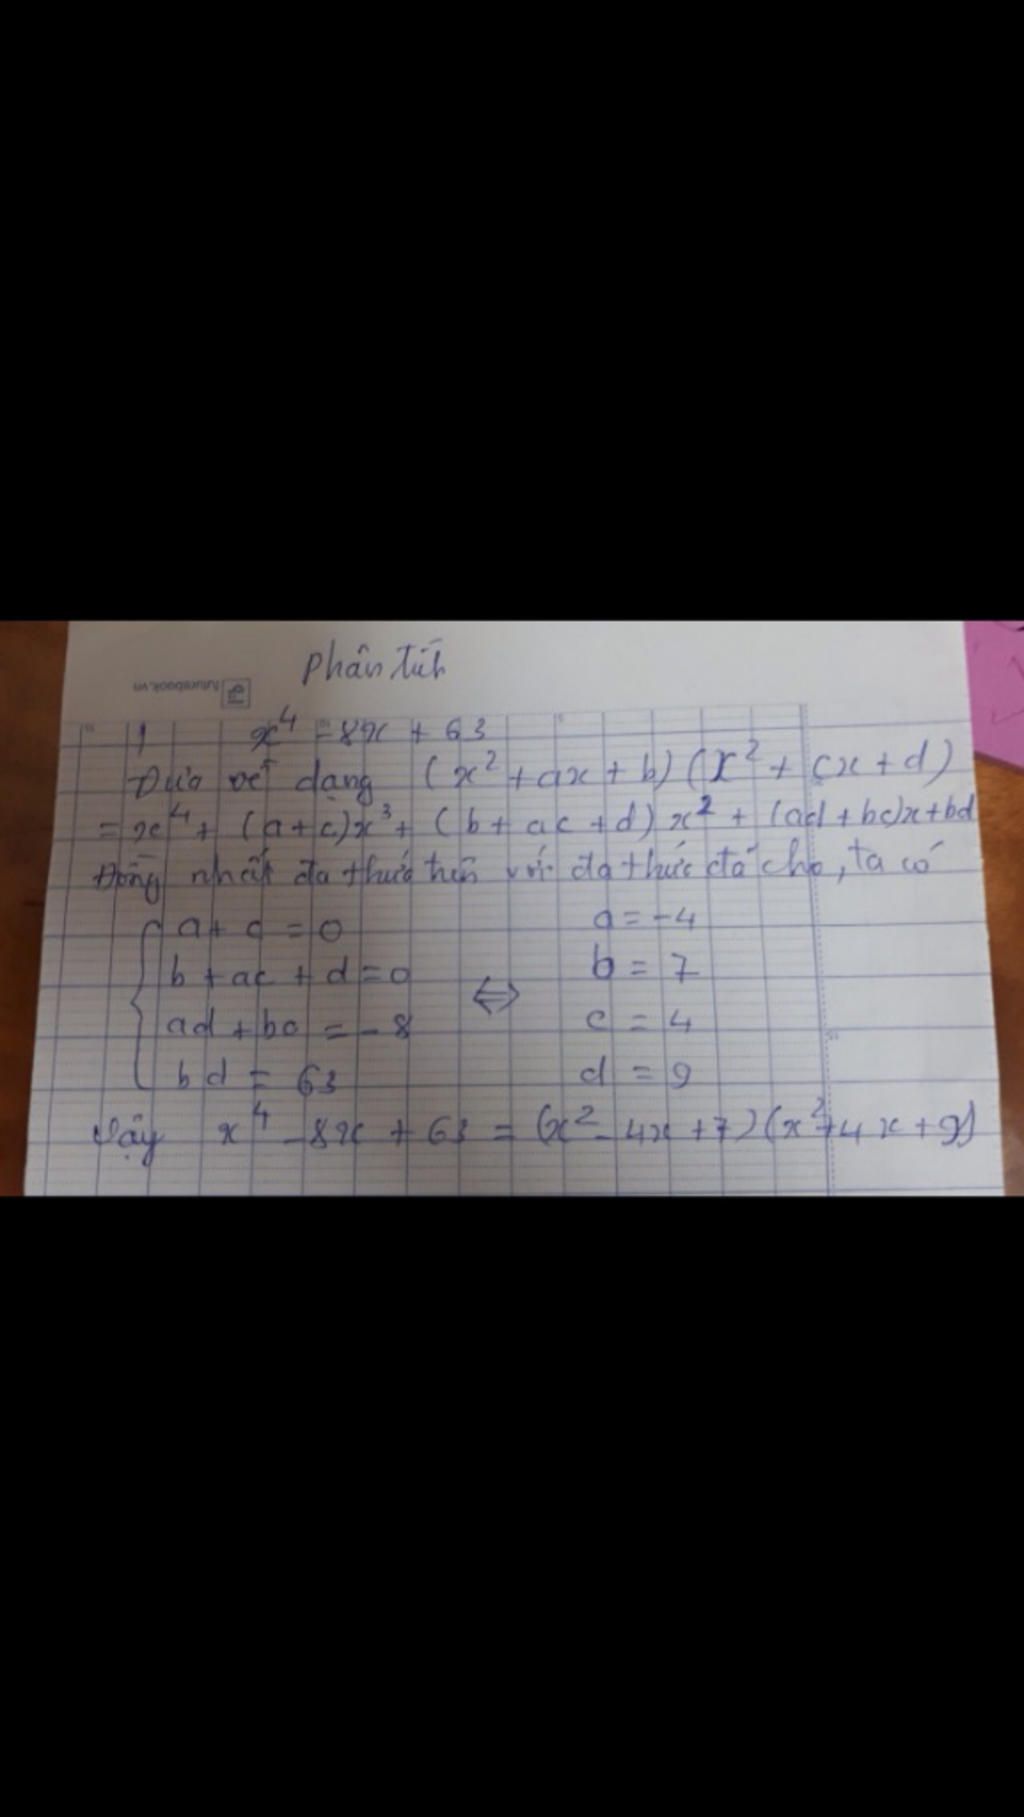 Phân tích
futurebook.vn
1 x⁴ - 8x + 63
Đưa về dạng (x² + ax + b) (x² + cx + d)
= x⁴ + (a+c)x³ + (b + ac + d) x² + (ad + bc)x + bd
Đồng nhất đa thức trên với đa thức đã cho, ta có
a + c = 0 a = -4
b + ac + d = 0 b = 7
⇔
ad + bc = -8 c = 4
bd = 63 d = 9
Vậy x⁴ - 8x + 63 = (x² - 4x + 7) (x² + 4x + 9)